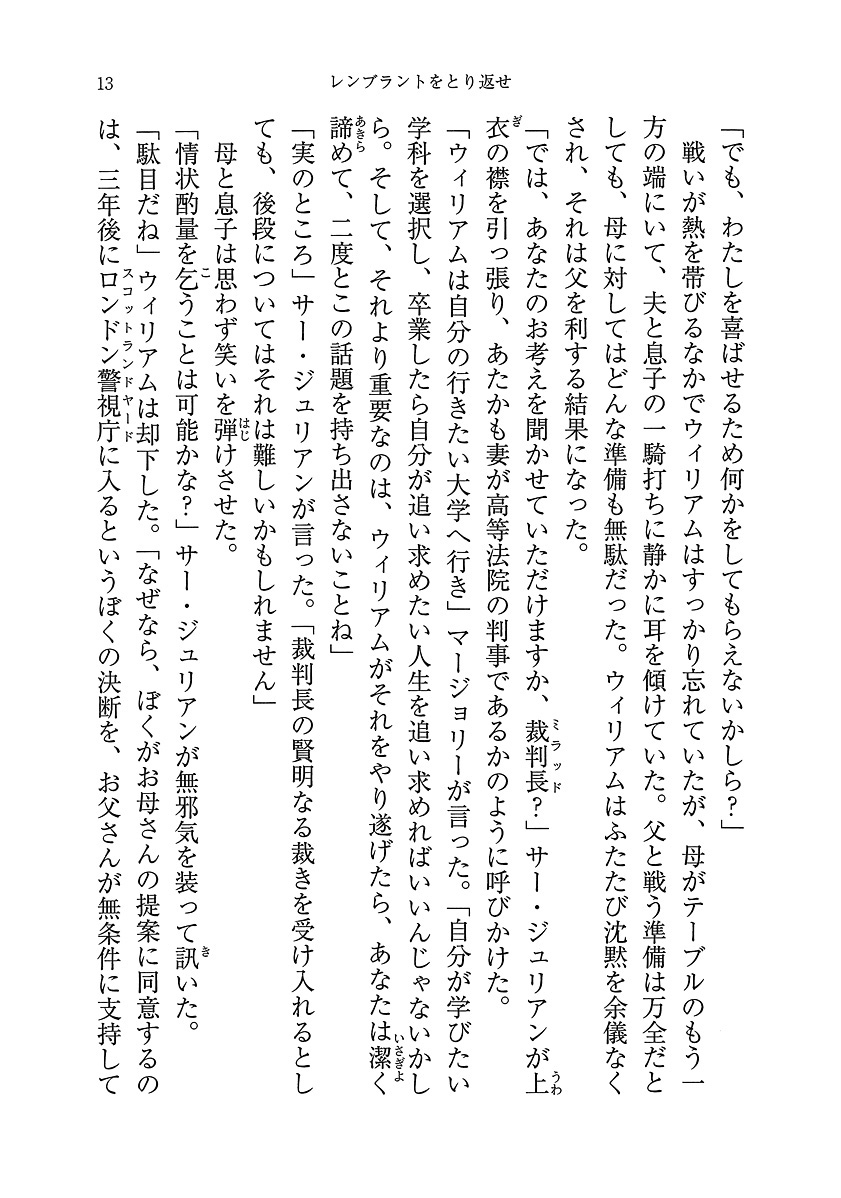 13
レンブラントをとり返せ
「でも、わたしを喜ばせるため何かをしてもらえないかしら？」
　戦いが熱を帯びるなかでウィリアムはすっかり忘れていたが、母がテーブルのもう一
方の端にいて、夫と息子の一騎打ちに静かに耳を傾けていた。父と戦う準備は万全だと
しても、母に対してはどんな準備も無駄だった。ウィリアムはふたたび沈黙を余儀なく
され、それは父を利する結果になった。
「では、あなたのお考えを聞かせていただけますか、裁判長（ミラッド）？」サー・ジュリアンが上（うわ）
衣（ぎ）の襟を引っ張り、あたかも妻が高等法院の判事であるかのように呼びかけた。
「ウィリアムは自分の行きたい大学へ行き」マージョリーが言った。「自分が学びたい
学科を選択し、卒業したら自分が追い求めたい人生を追い求めればいいんじゃないかし
ら。そして、それより重要なのは、ウィリアムがそれをやり遂げたら、あなたは潔（いさぎよ）く
諦（あきら）めて、二度とこの話題を持ち出さないことね」
「実のところ」サー・ジュリアンが言った。「裁判長の賢明なる裁きを受け入れるとし
ても、後段についてはそれは難しいかもしれません」
　母と息子は思わず笑いを弾（はじ）けさせた。
「情状酌量を乞（こ）うことは可能かな？」サー・ジュリアンが無邪気を装って訊（き）いた。
「駄目だね」ウィリアムは却下した。「なぜなら、ぼくがお母さんの提案に同意するの
は、三年後にロンドン警視庁（スコットランドヤード）に入るというぼくの決断を、お父さんが無条件に支持して